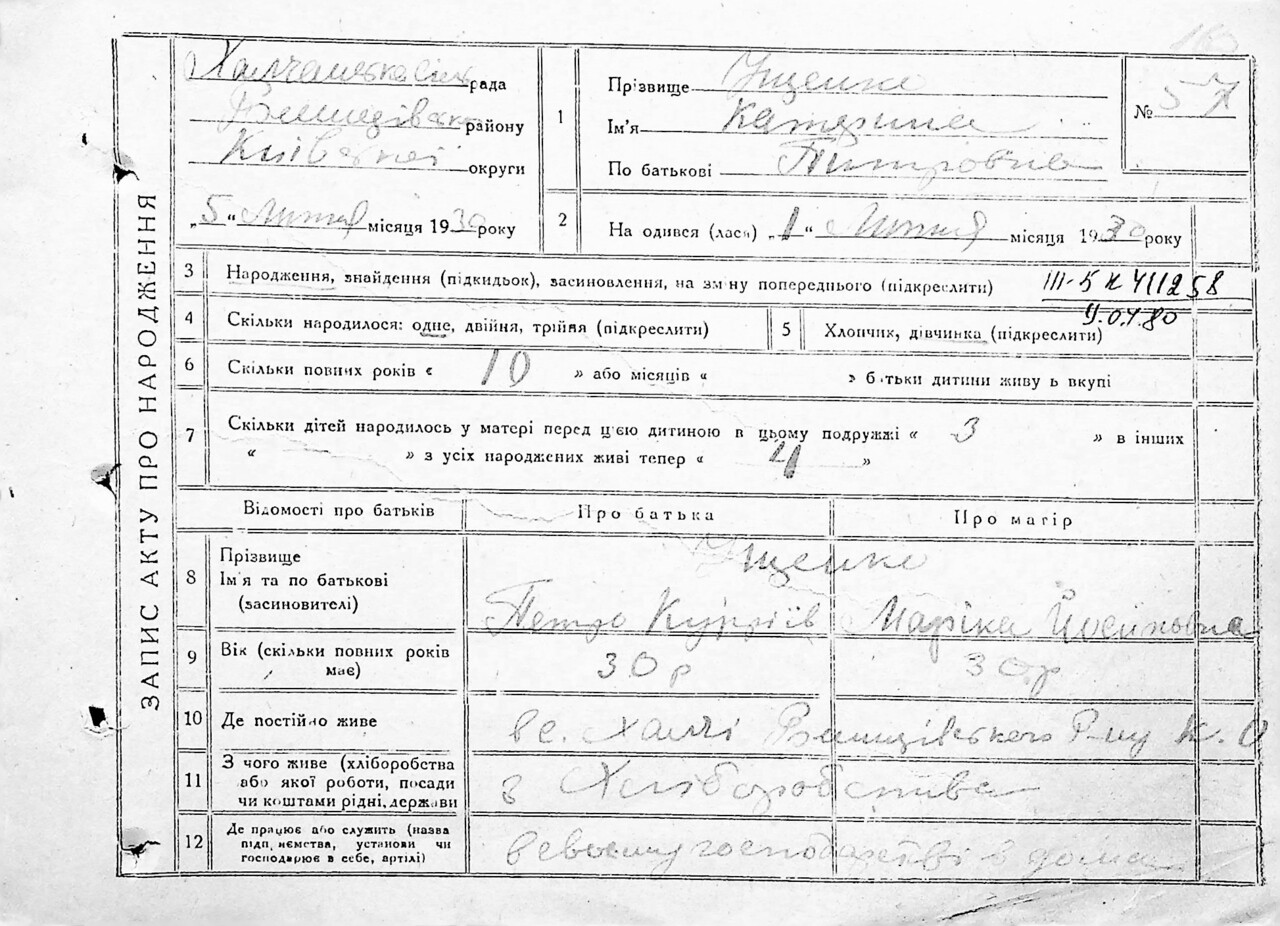 ЗАПИС АКТУ ПРО НАРОДЖЕННЯ
Халчанська сіль рада
району
Київської округи
„5“ Лютня місяця 1930 року
1
Прізвище Ященко
Ім'я Катерина
По батькові Питровна
№ 57
2
На одився (лася) „1“ Лютня місяця 1930 року
3 Народження, знайдення (підкидьок), засиновлення, на зміну попереднього (підкреслити)
III-5 К 411258
9.04.80
4 Скільки народилося: одне, двійня, трійня (підкреслити)
5 Хлопчик, дівчинка (підкреслити)
6 Скільки повних років « 10 » або місяців « » батьки дитини живуть вкупі
7 Скільки дітей народилось у матері перед цією дитиною в цьому подружжі « 3 » в інших
« » з усіх народжених живі тепер « 4 »
Відомості про батьків Про батька Про матір
8 Прізвище
Ім'я та по батькові
(засиновителі)
Ященко
Петро Маріка Йосиповна
9 Вік (скільки повних років
має)
30 р 30 р
10 Де постійно живе
в с. Халчі Р-ну К. О
11 З чого живе (хліборобства
або якої роботи, посади
чи коштами рідні, держави
з Хліборобства
12 Де працює або служить (назва
підп,иємства, установи чи
господарює в себе, артілі)
в своєму господарстві в дома